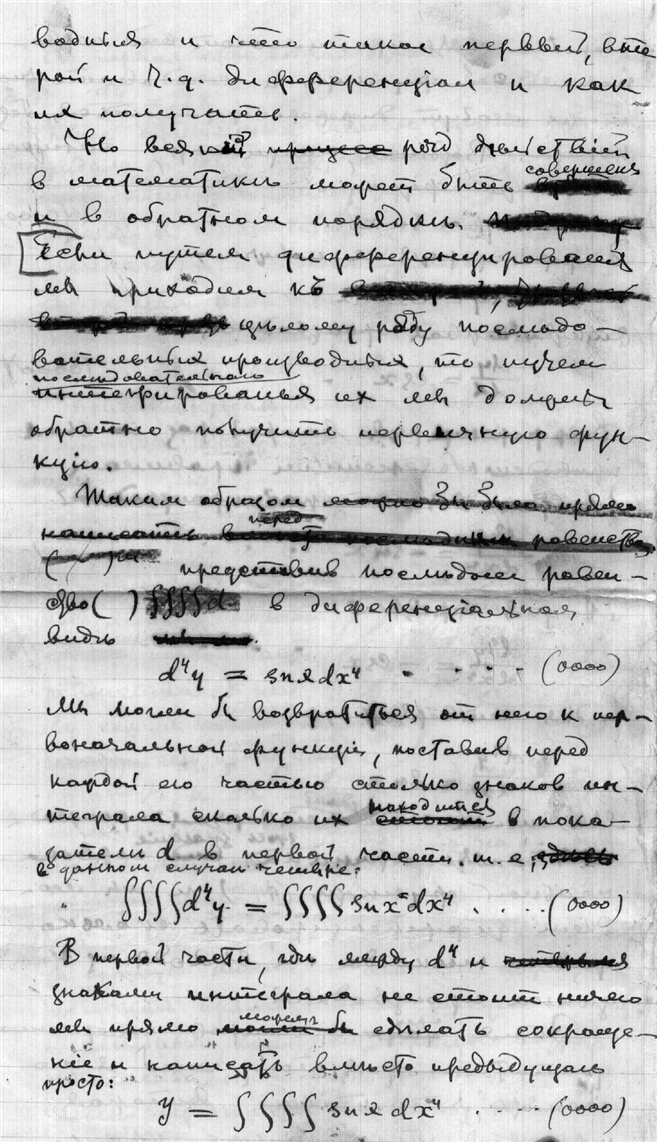 водныя и что такое первый, вто
рой и т.д. диференціал и как
их получать.
Но всякій процесс род действій
в математике может быть совершен
и в обратном порядке.
Если путем диференцирования
мы приходим къ
целому ряду последо-
вательных производных, то путем
последовательнаго
интегрированья их мы должны
обратно получить первичную фун-
кцію.
Таким образом можно бы было прямо
написать перед последним равенство
( ) представив последнее равен-
ство ( ) ∫∫∫∫d в диференціальном
виде
d⁴y = snx dx⁴ . . . . (0000)
Мы могли б возвратиться от него к пер-
воначальной функціи, поставив перед
каждой его частью столько знаков ин-
теграла сколько их находится в пока-
зателе d в первой части. т. е.
в данном случае четыре:
∫∫∫∫d⁴y = ∫∫∫∫ snx dx⁴ . . . . (0000)
В первой части, где между d⁴ и
знаками интеграла не стоит ничего
мы прямо можем сделать сокраще-
ніе и написать вместо предыдущаго
просто:
y = ∫∫∫∫ snx dx⁴ . . . . (0000)